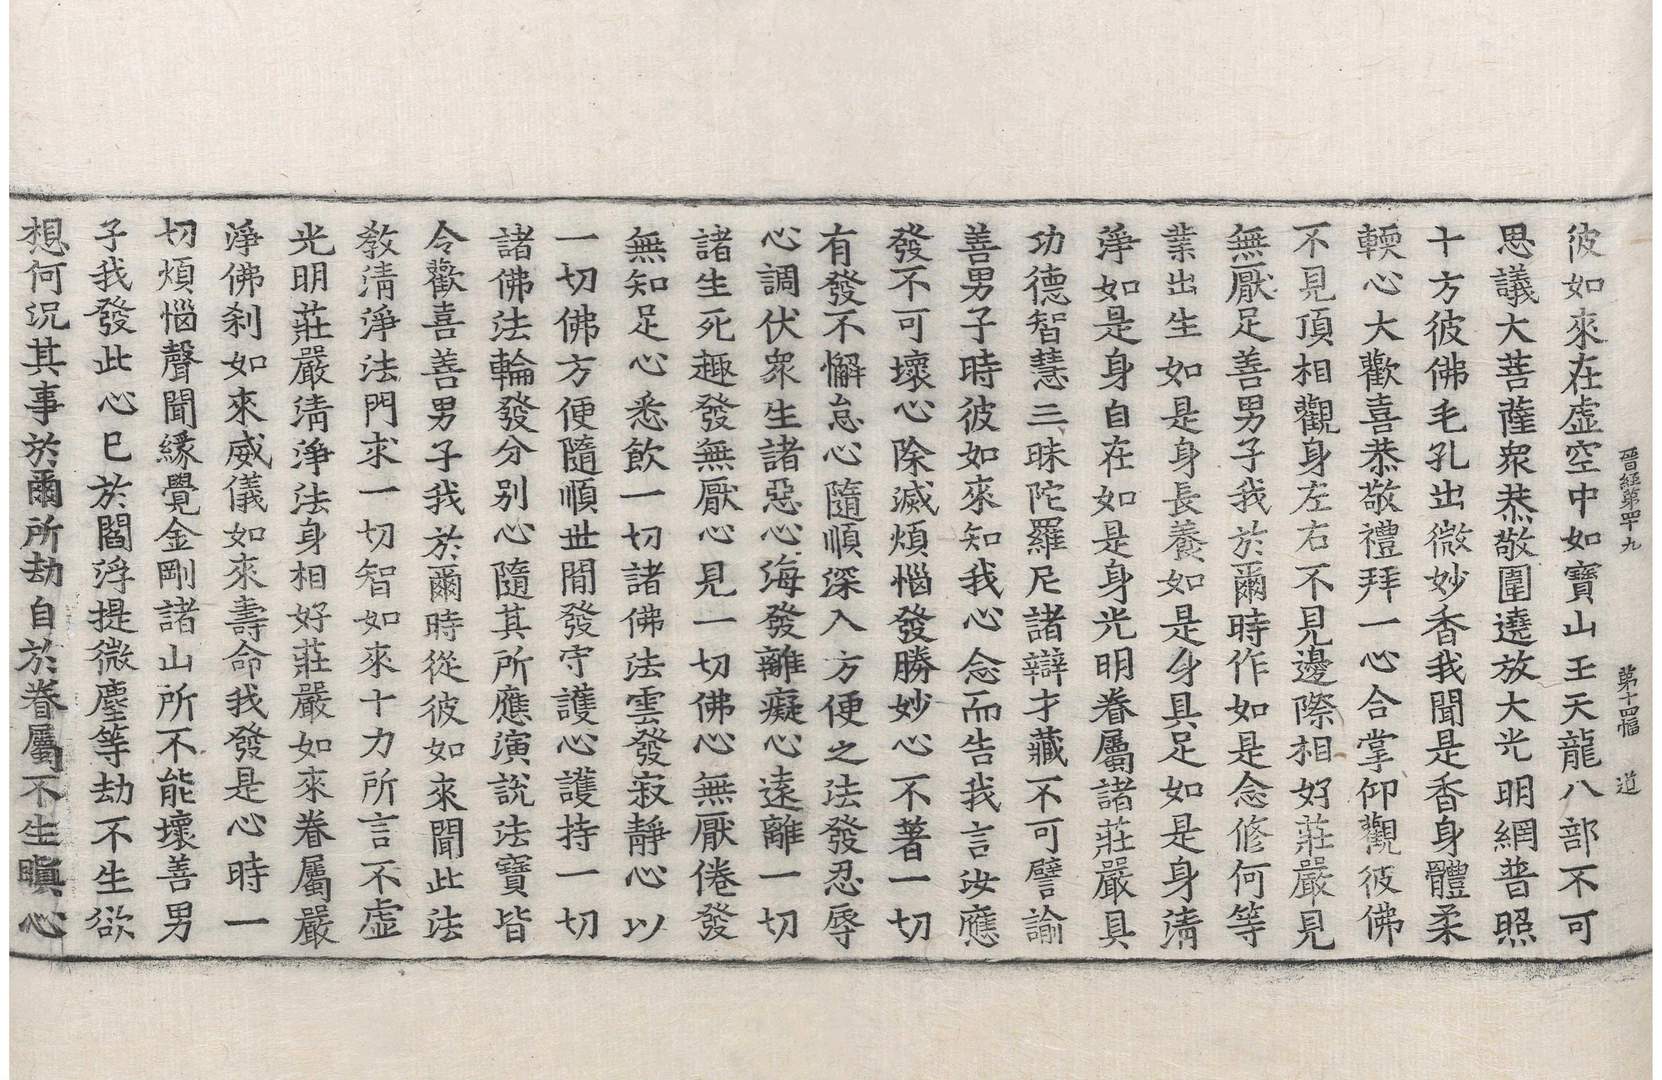 晉經第四十九　第十四幅　道
彼如來在虛空中如寶山王天龍八部不可
思議大菩薩衆恭敬圍遶放大光明網普照
十方彼佛毛孔出微妙香我聞是香身體柔
輭心大歡喜恭敬禮拜一心合掌仰觀彼佛
不見頂相觀身左右不見邊際相好莊嚴見
無厭足善男子我於爾時作如是念修何等
業出生如是身長養如是身具足如是身淸
淨如是身自在如是身光明眷屬諸莊嚴具
功德智慧三昧陀羅尼諸辯才藏不可譬諭
善男子時彼如來知我心念而告我言汝應
發不可壞心除滅煩惱發勝妙心不著一切
有發不懈怠心隨順深入方便之法發忍辱
心調伏衆生諸惡心海發離癡心遠離一切
諸生死趣發無厭心見一切佛心無厭倦發
無知足心悉飮一切諸佛法雲發寂靜心以
一切佛方便隨順世間發守護心護持一切
諸佛法輪發分別心隨其所應演說法寶皆
令歡喜善男子我於爾時從彼如來聞此法
教淸淨法門求一切智如來十力所言不虛
光明莊嚴淸淨法身相好莊嚴如來眷屬嚴
淨佛刹如來威儀如來壽命我發是心時一
切煩惱聲聞緣覺金剛諸山所不能壞善男
子我發此心已於閻浮提微塵等劫不生欲
想何況其事於爾所劫自於眷屬不生瞋心